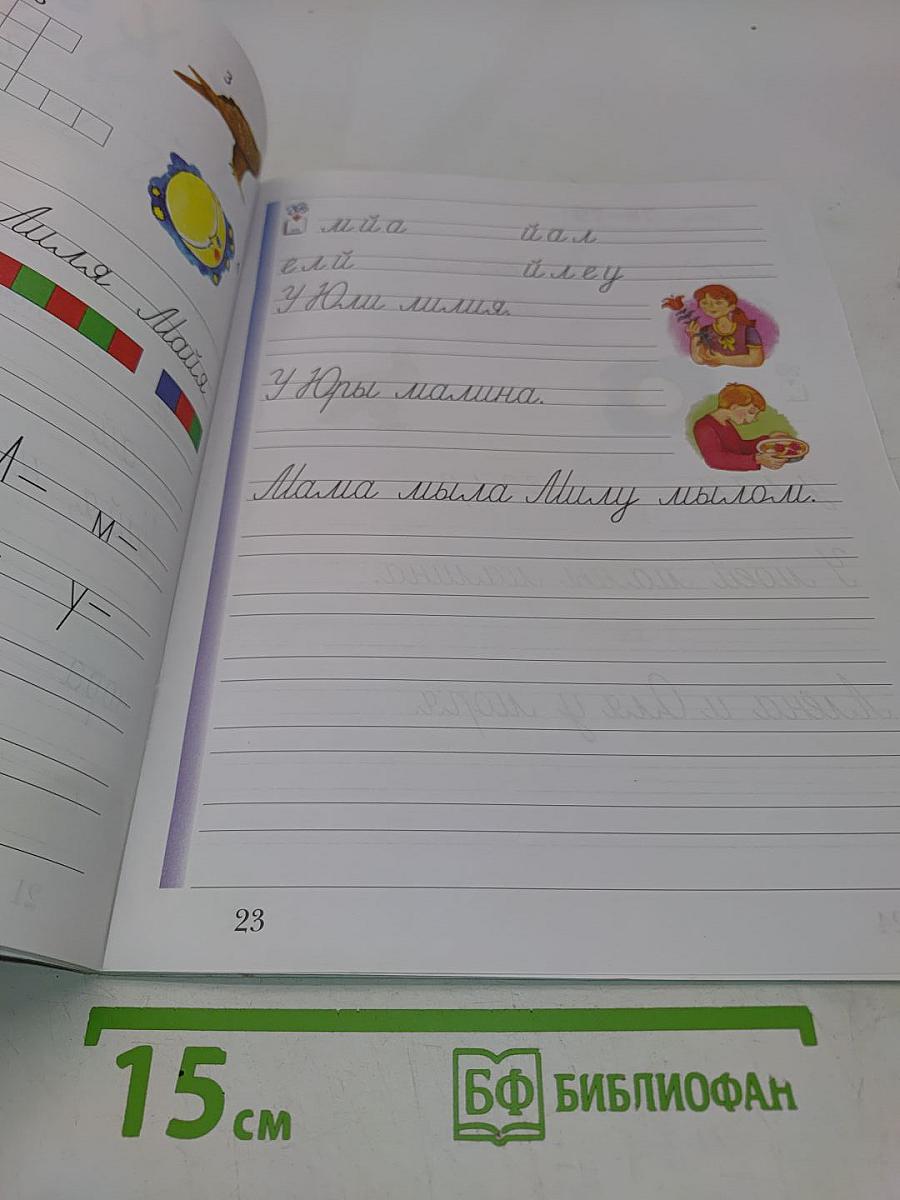 Лиля Майя
Л–
м–
у–
мйа йал
елй йлеу
У Юли лилия.
У Юры малина.
Мама мыла Милу мылом.
23
15 см
БФ БИБЛИОФАН